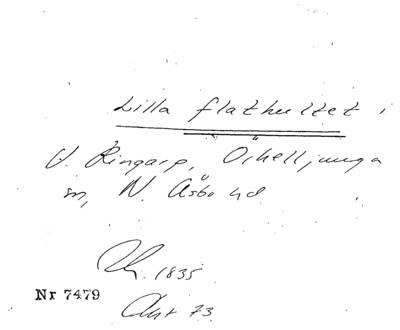 Lilla flathultet i
V. Ringarp, Örkelljunga
sn, N. Åsbo hd
1835
Nr 7479
Akt 73